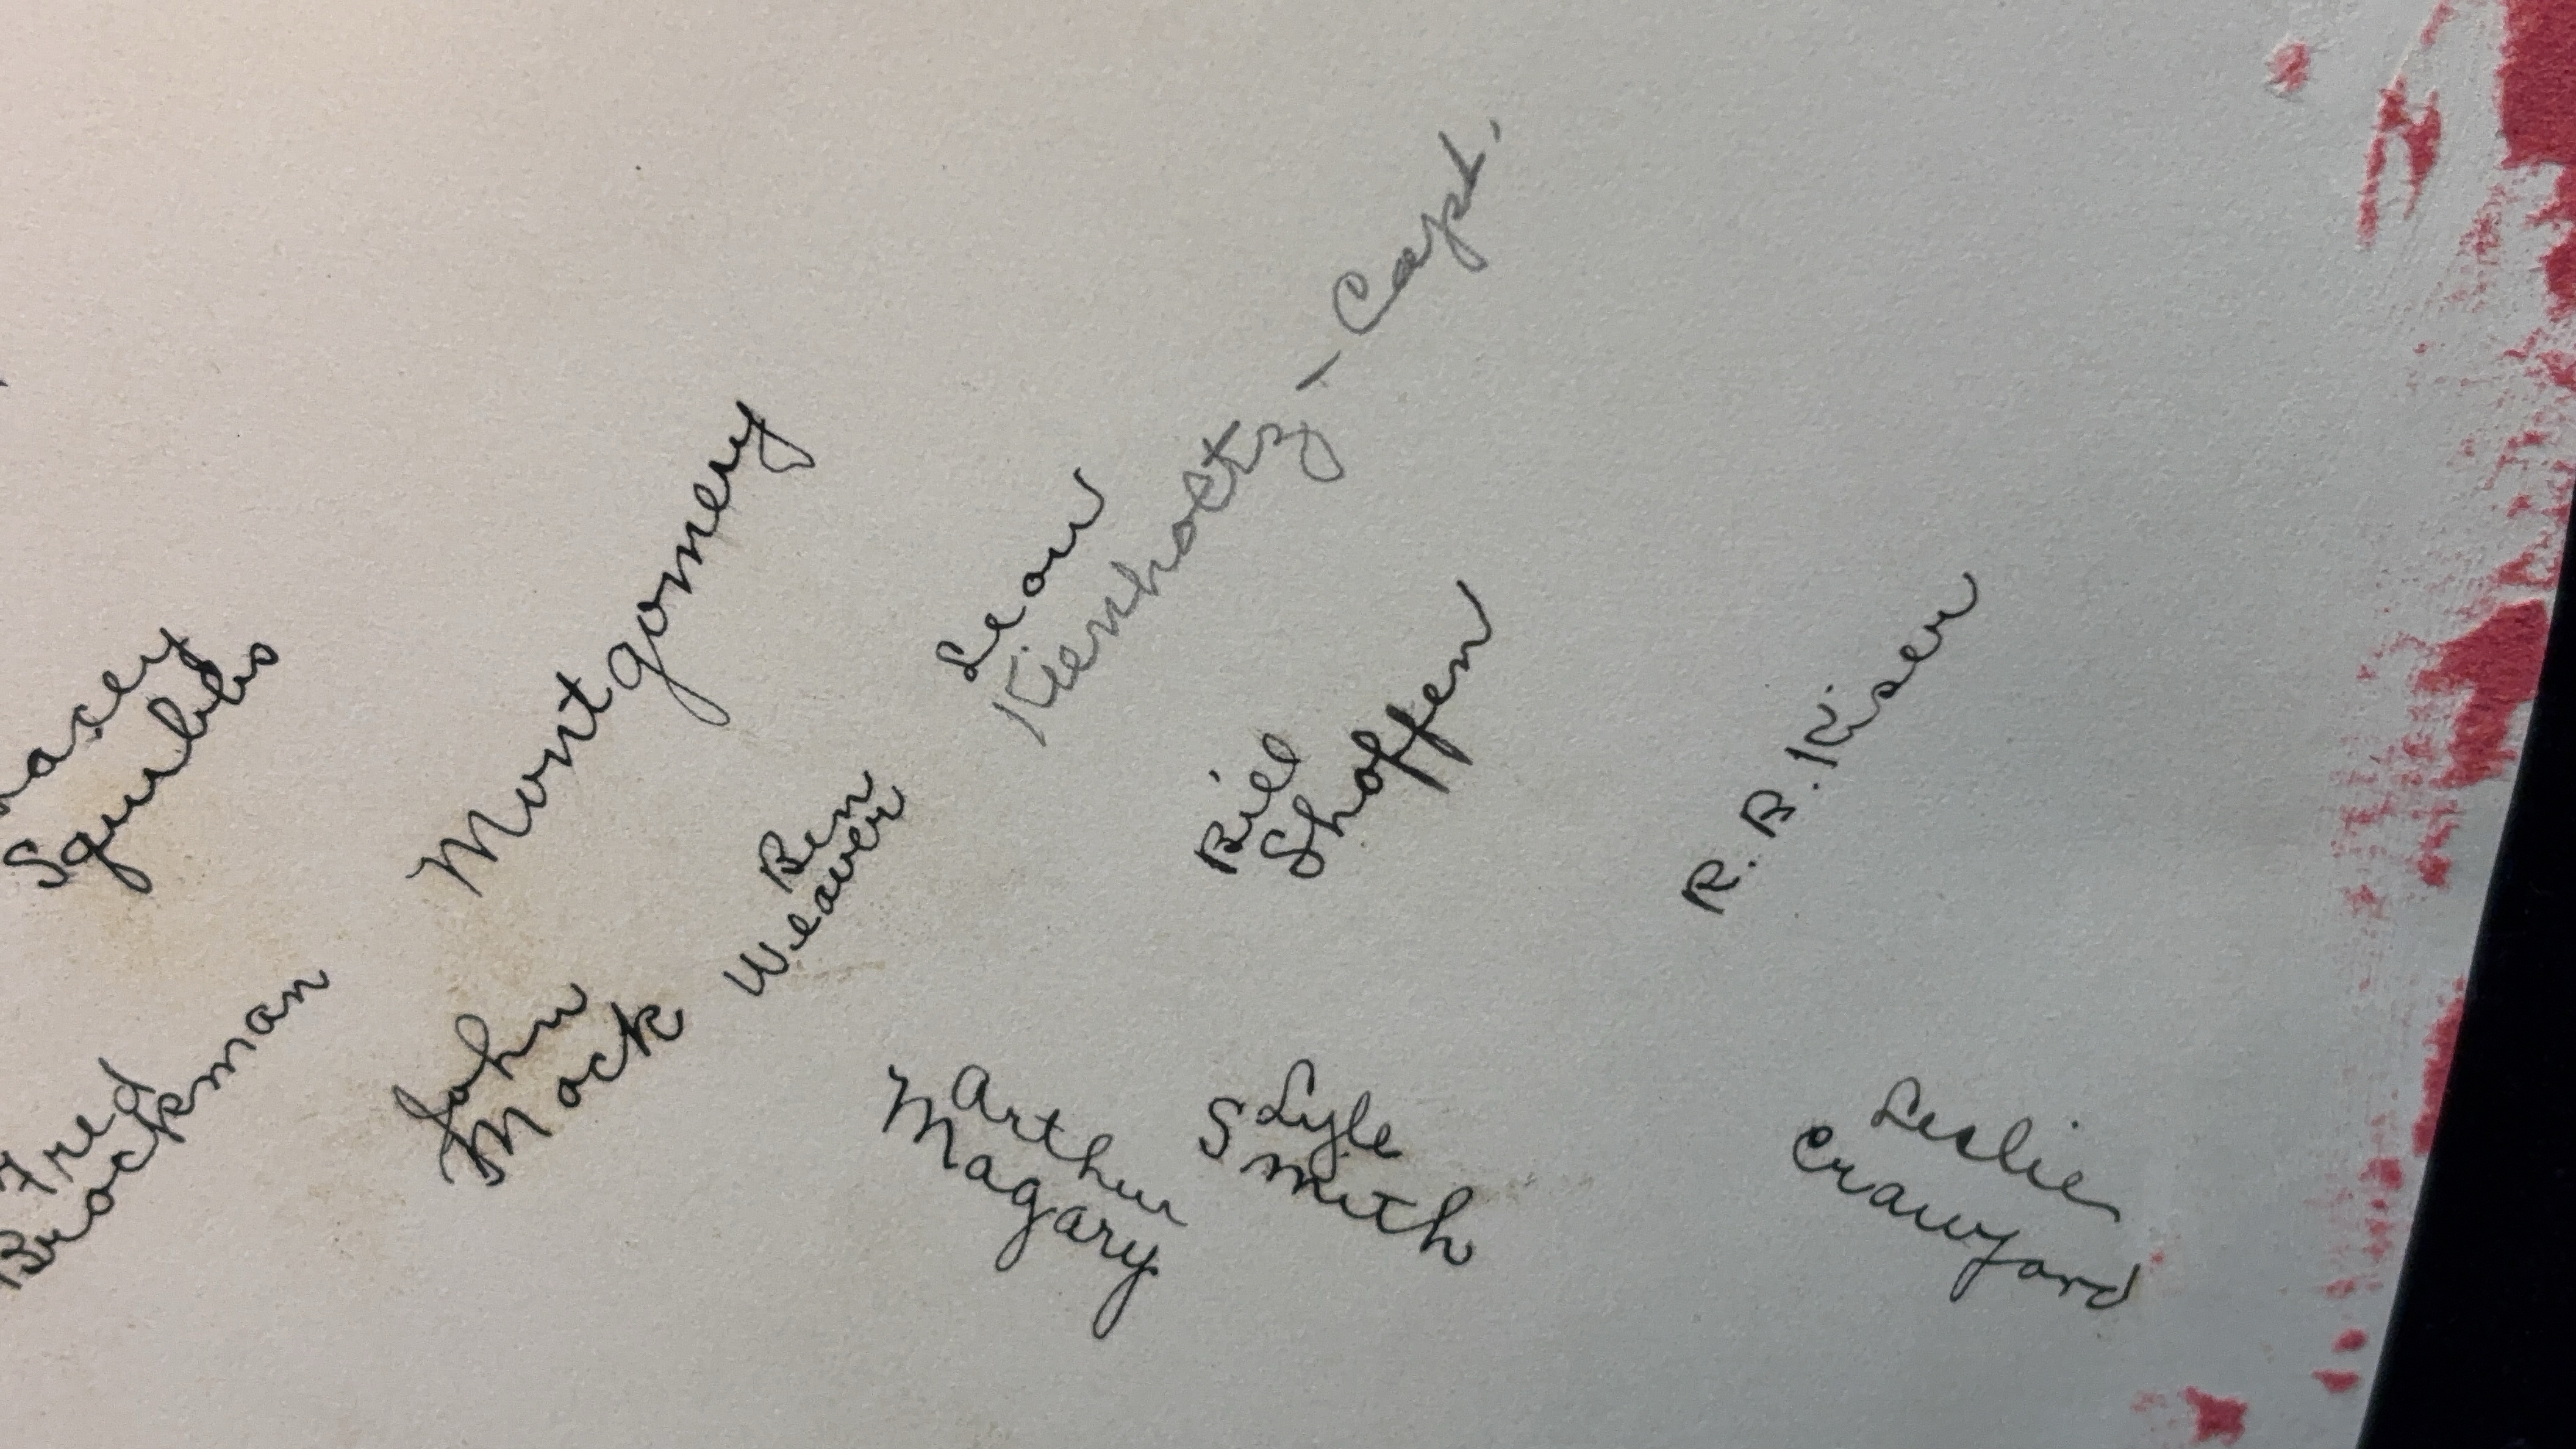 Squibbs
Montgomery
Leon
Kienholtz - Capt.
Ben
Weaver
Bill
Shoffen
R. B. Kiser
Fred
Brockman
John
Mock
Arthur
Magary
Lyle
Smith
Leslie
Crawford